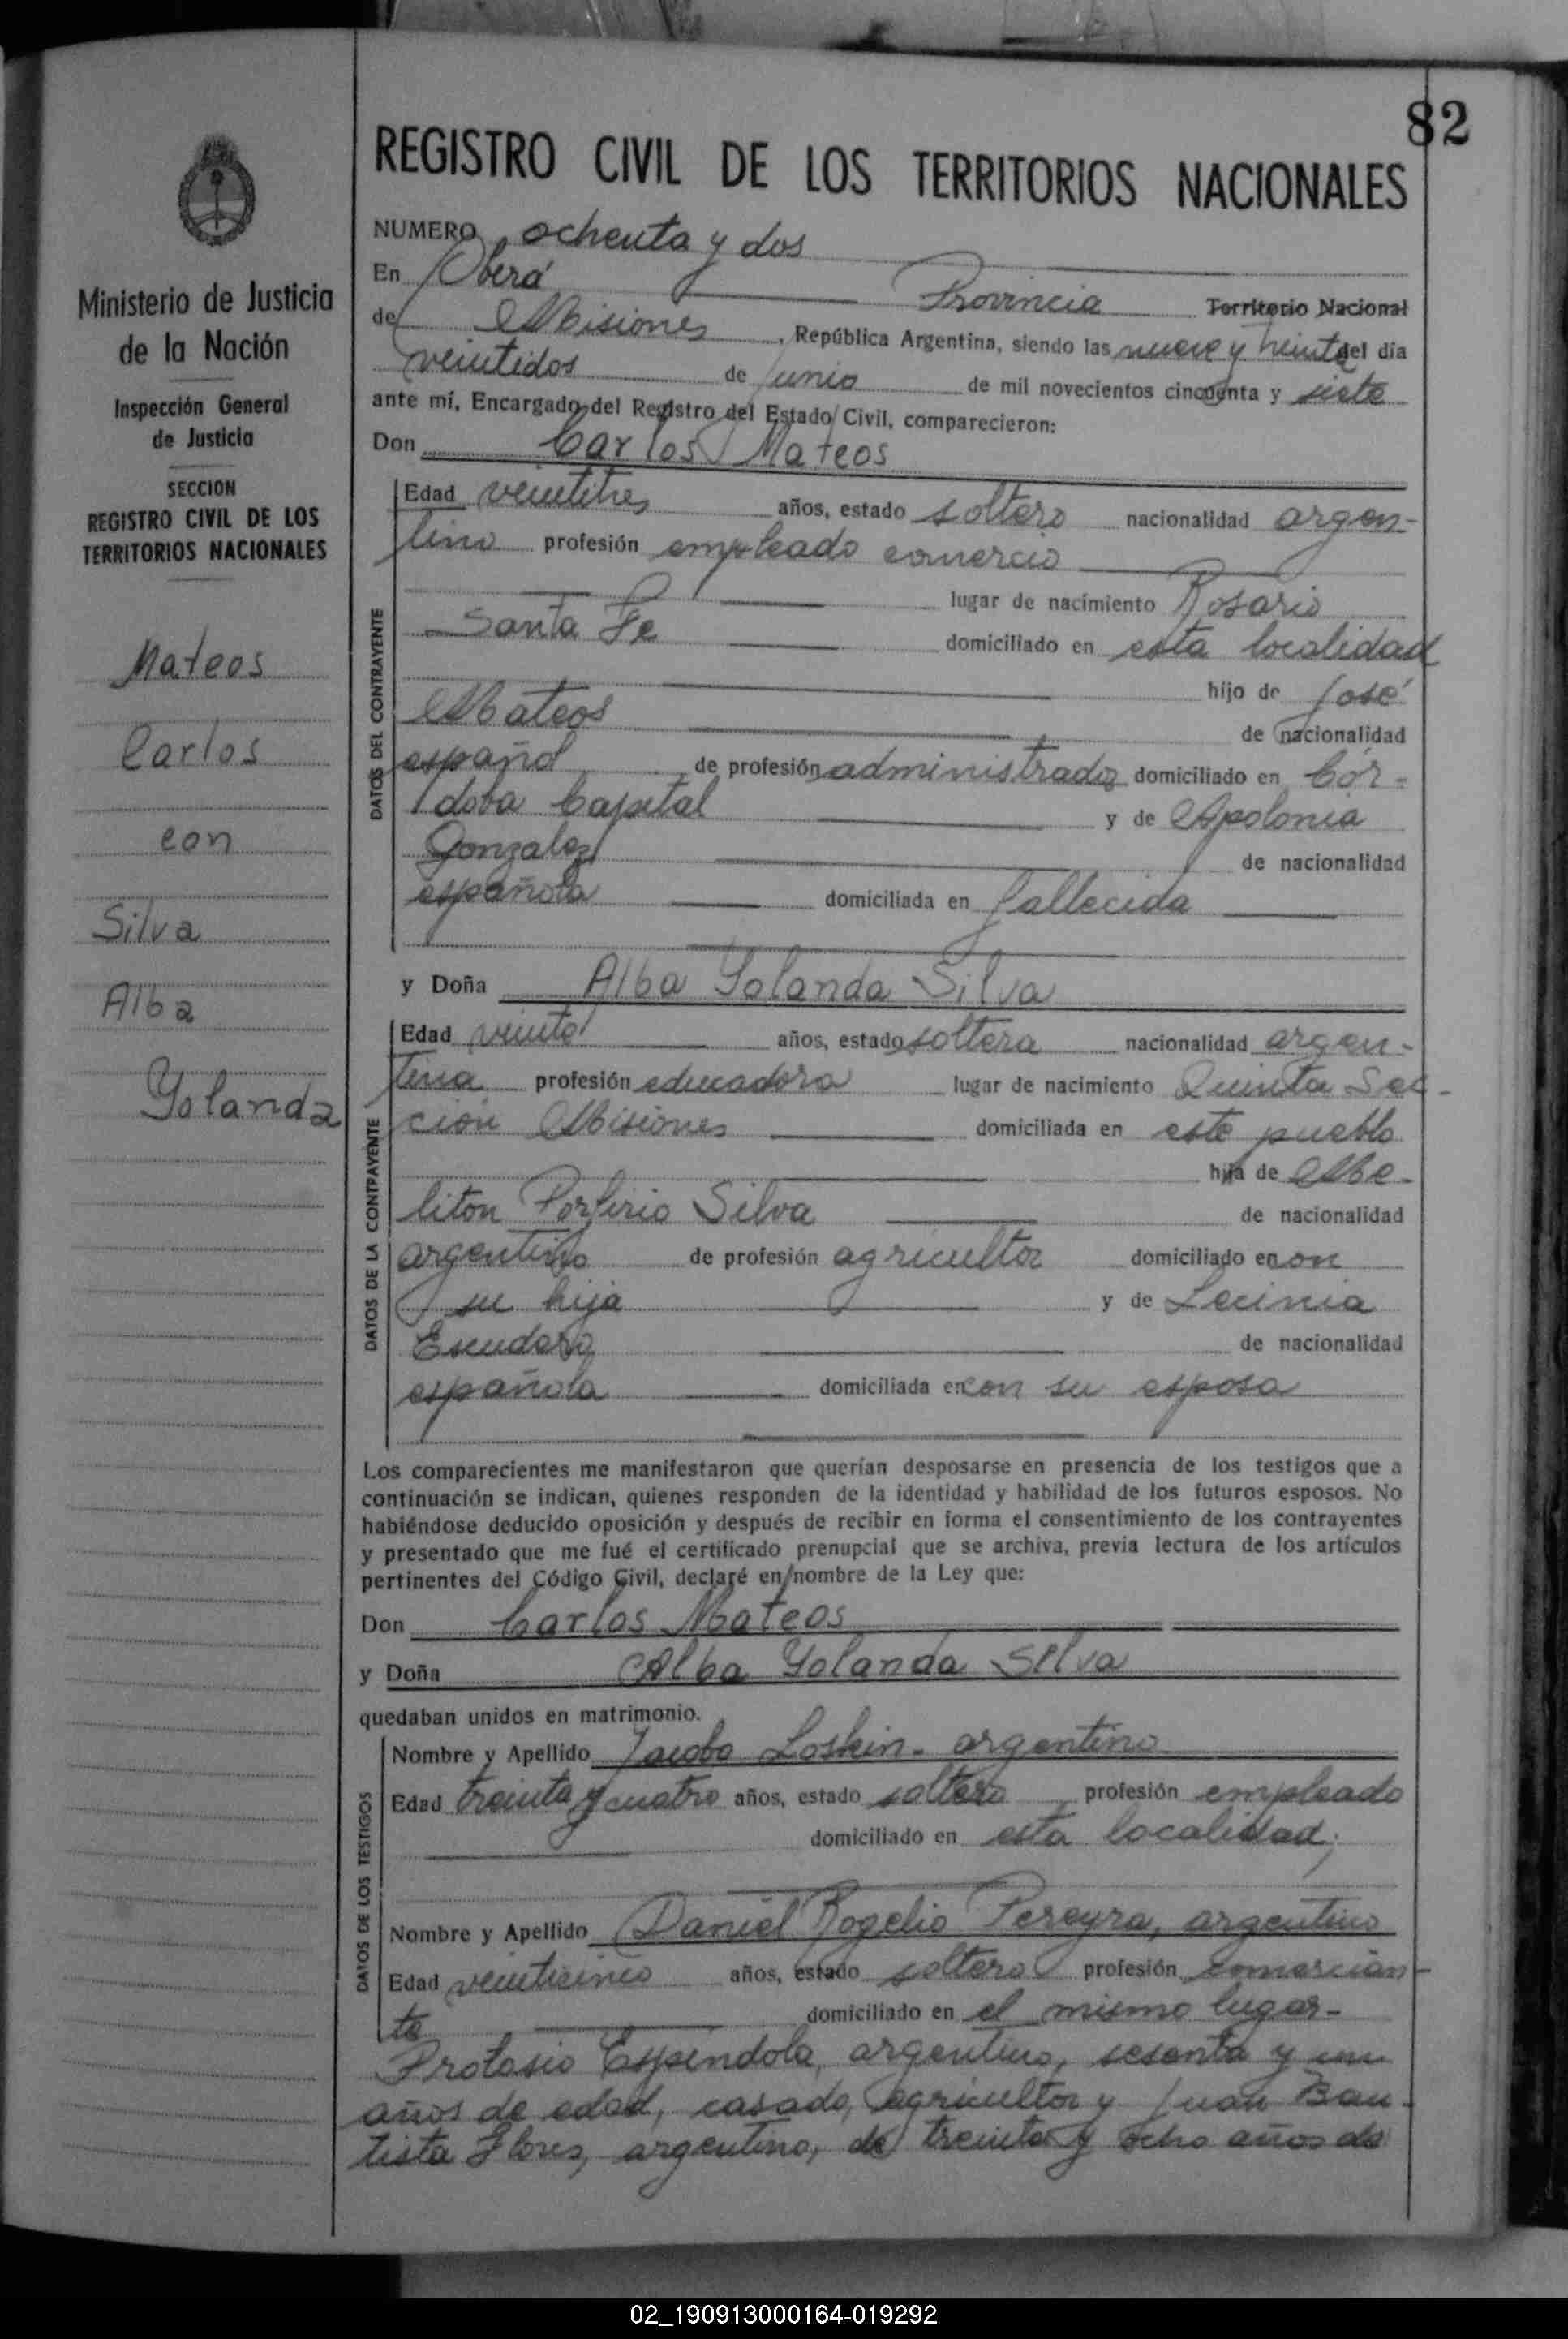 82
REGISTRO CIVIL DE LOS TERRITORIOS NACIONALES
NUMERO ochenta y dos
En Oberá Provincia Territorio Nacional
de Misiones, República Argentina, siendo las nueve y treinta del día
veintidos de junio de mil novecientos cincuenta y siete
ante mí, Encargado del Registro del Estado Civil, comparecieron:
Don Carlos Mateos
Edad veintitres años, estado soltero nacionalidad argen-
tino profesión empleado comercio
lugar de nacimiento Rosario
Santa Fe domiciliado en esta localidad
hijo de José
Mateos de nacionalidad
español de profesión administrador domiciliado en Cór-
doba Capital y de Apolonia
Gonzalez de nacionalidad
española domiciliada en fallecida
y Doña Alba Yolanda Silva
Edad veinte años, estado soltera nacionalidad argen-
tina profesión educadora lugar de nacimiento Quinta Sec-
ción Misiones domiciliada en este pueblo
hija de Me-
liton Porfirio Silva de nacionalidad
argentino de profesión agricultor domiciliado en con
su hija y de Lecinia
Escudero de nacionalidad
española domiciliada en con su esposo
DATOS DEL CONTRAYENTE
DATOS DE LA CONTRAYENTE
Los comparecientes me manifestaron que querían desposarse en presencia de los testigos que a
continuación se indican, quienes responden de la identidad y habilidad de los futuros esposos. No
habiéndose deducido oposición y después de recibir en forma el consentimiento de los contrayentes
y presentado que me fué el certificado prenupcial que se archiva, previa lectura de los artículos
pertinentes del Código Civil, declaré en nombre de la Ley que:
Don Carlos Mateos
y Doña Alba Yolanda Silva
quedaban unidos en matrimonio.
Nombre y Apellido Jacobo Loskin- argentino
Edad treinta y cuatro años, estado soltero profesión empleado
domiciliado en esta localidad;
Nombre y Apellido Daniel Rogelio Pereyra, argentino
Edad veinticinco años, estado soltero profesión comercian-
te domiciliado en el mismo lugar-
Protasio Espindola, argentino, sesenta y un
años de edad, casado, agricultor y Juan Bau-
tista Flores, argentino, de treinta y ocho años de
DATOS DE LOS TESTIGOS
Ministerio de Justicia
de la Nación
Inspección General
de Justicia
SECCION
REGISTRO CIVIL DE LOS
TERRITORIOS NACIONALES
Mateos
Carlos
con
Silva
Alba
Yolanda
02_190913000164-019292